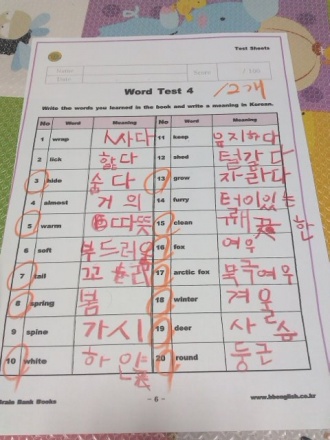 Test Sheets
Name
Date
Score / 100
Word Test 4
12개
Write the words you learned in the book and write a meaning in Korean.
No Word Meaning No Word Meaning
1 wrap 싸다 11 keep 유지하다
2 lick 핥다 12 shed 털갈다
3 hide 숨다 13 grow 자라다
4 almost 거의 14 furry 털이있는
5 warm 따뜻 15 clean 깨끗한
6 soft 부드러운 16 fox 여우
7 tail 꼬리 17 arctic fox 북극여우
8 spring 봄 18 winter 겨울
9 spine 가시 19 deer 사슴
10 white 하얀 20 round 둥근
Brain Bank Books
- 6 -
www.bbenglish.co.kr